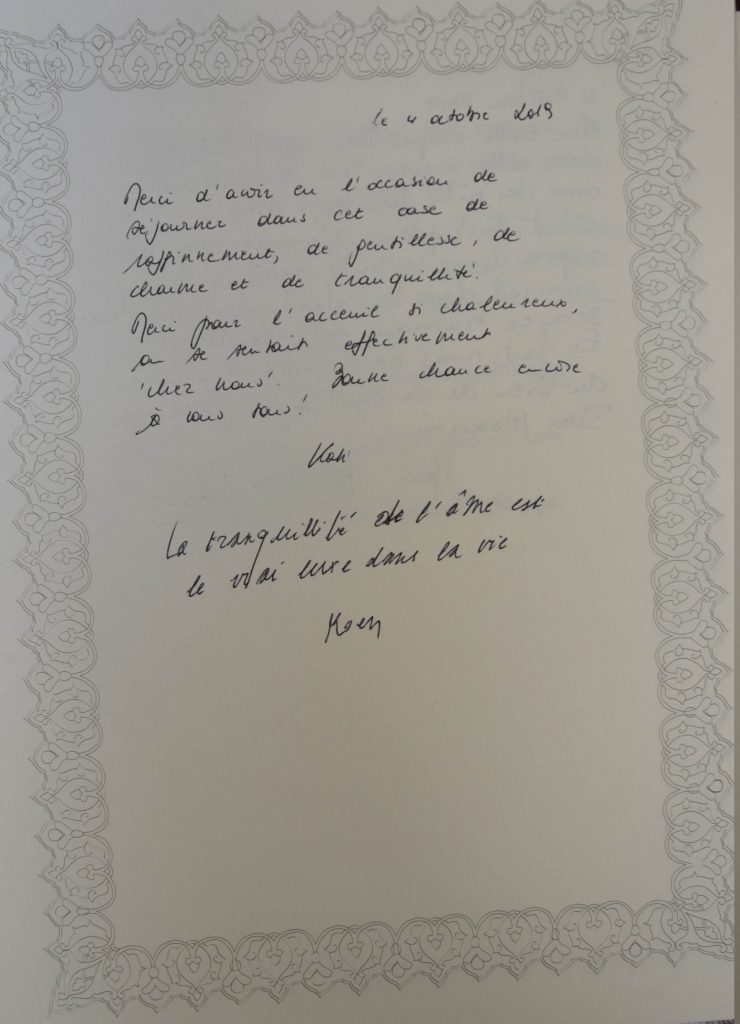 le 4 octobre 2019
Merci d'avoir eu l'occasion de
séjourner dans cet oase de
raffinnement, de gentillesse, de
charme et de tranquillité.
Merci pour l'acceuil si chaleureux,
on se sentait effectivement
'chez nous'. Bonne chance encore
à vous tous!
La tranquillité de l'âme est
le vrai luxe dans la vie
Koen